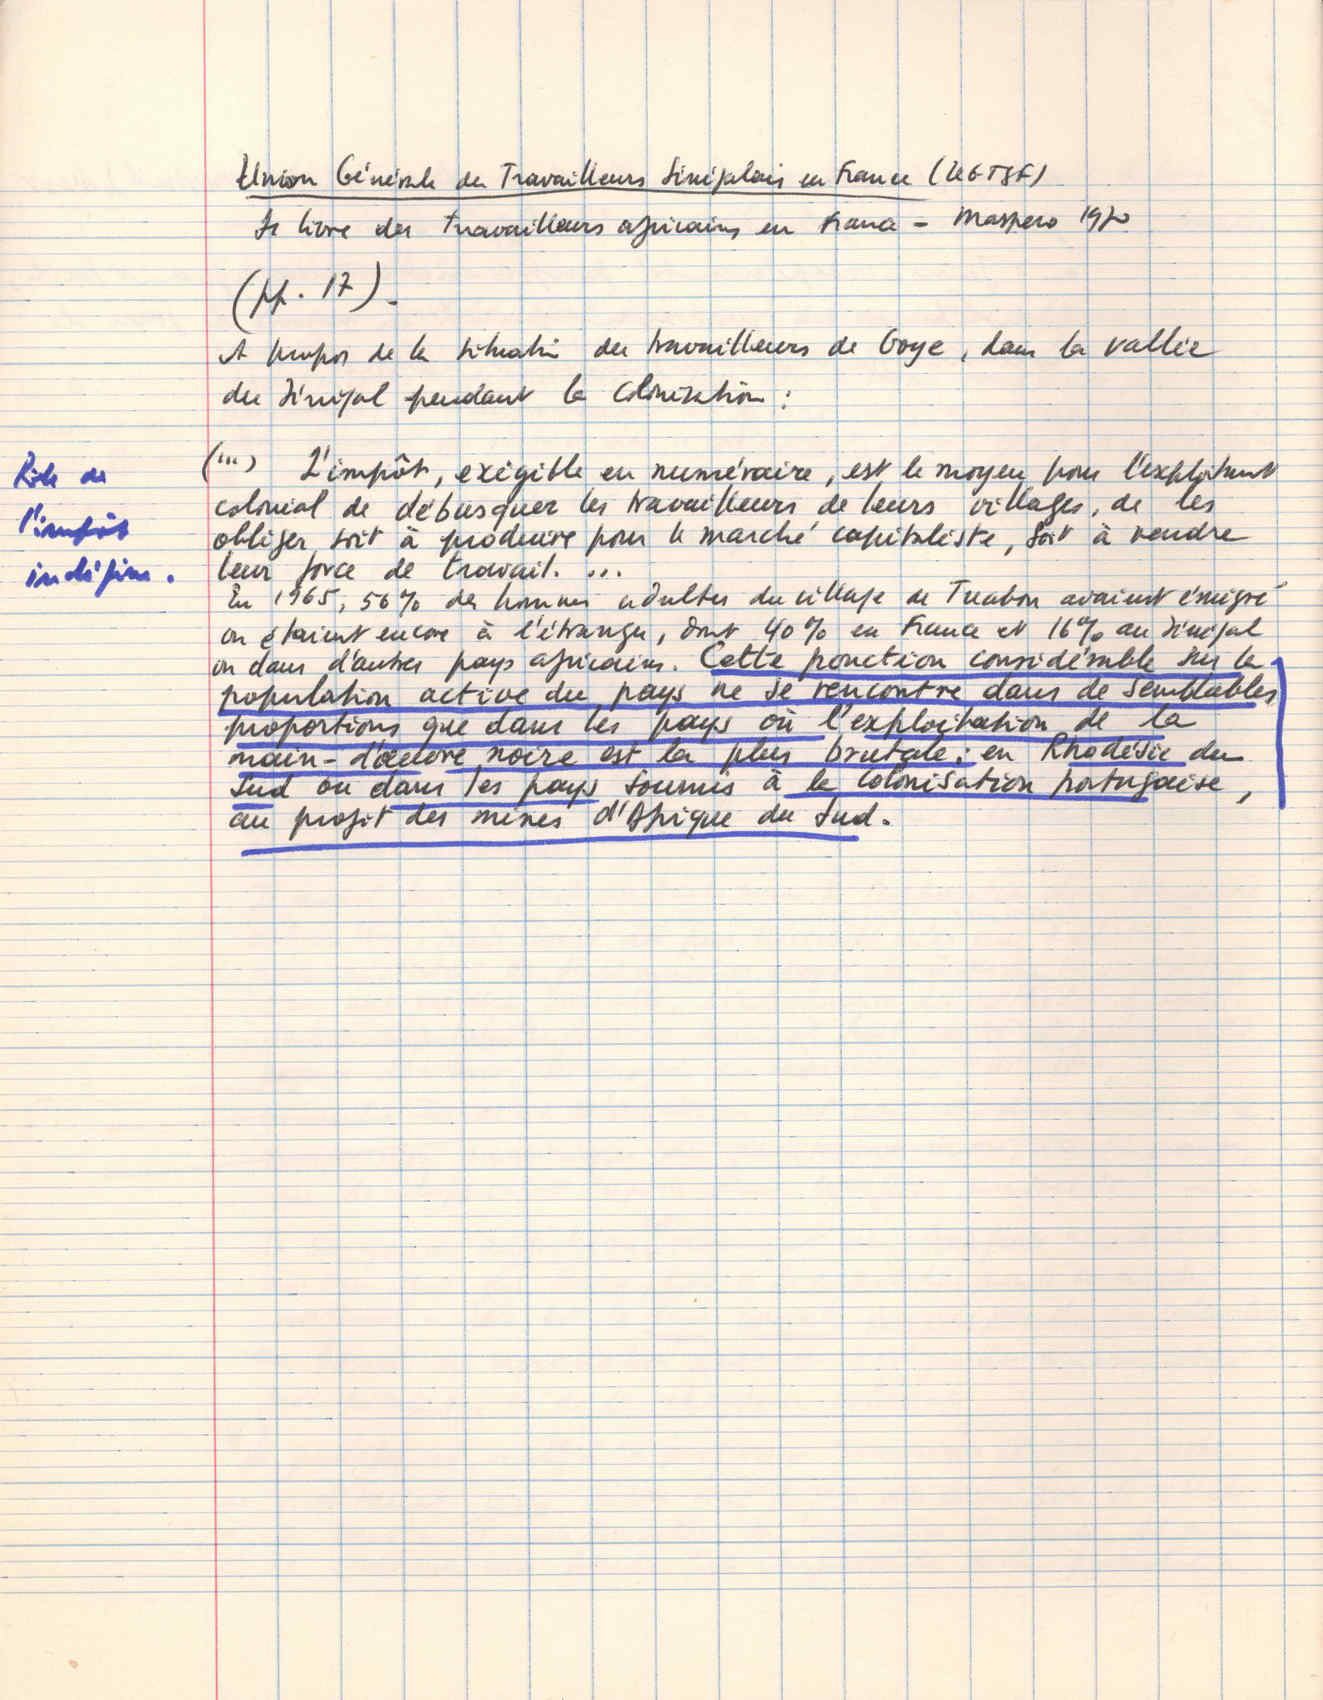 Union Générale des Travailleurs Sénégalais en France (UGTSF)
Le livre des travailleurs africains en France - Maspero 1970
(pp. 17).
A propos de la situation des travailleurs de Goye, dans la vallée
du Sénégal pendant la colonisation :
Rôle de
l'impôt
indigène.
(...) L'impôt, exigible en numéraire, est le moyen pour l'exploitant
colonial de débusquer les travailleurs de leurs villages, de les
obliger soit à produire pour le marché capitaliste, soit à vendre
leur force de travail. ...
En 1965, 56% des hommes adultes du village de Tuabou avaient émigré
ou étaient encore à l'étranger, dont 40% en France et 16% au Sénégal
ou dans d'autres pays africains. Cette ponction considérable sur la
population active du pays ne se rencontre dans de semblables
proportions que dans les pays où l'exploitation de la
main-d'œuvre noire est la plus brutale : en Rhodésie du
Sud ou dans les pays soumis à la colonisation portugaise,
au profit des mines d'Afrique du Sud.